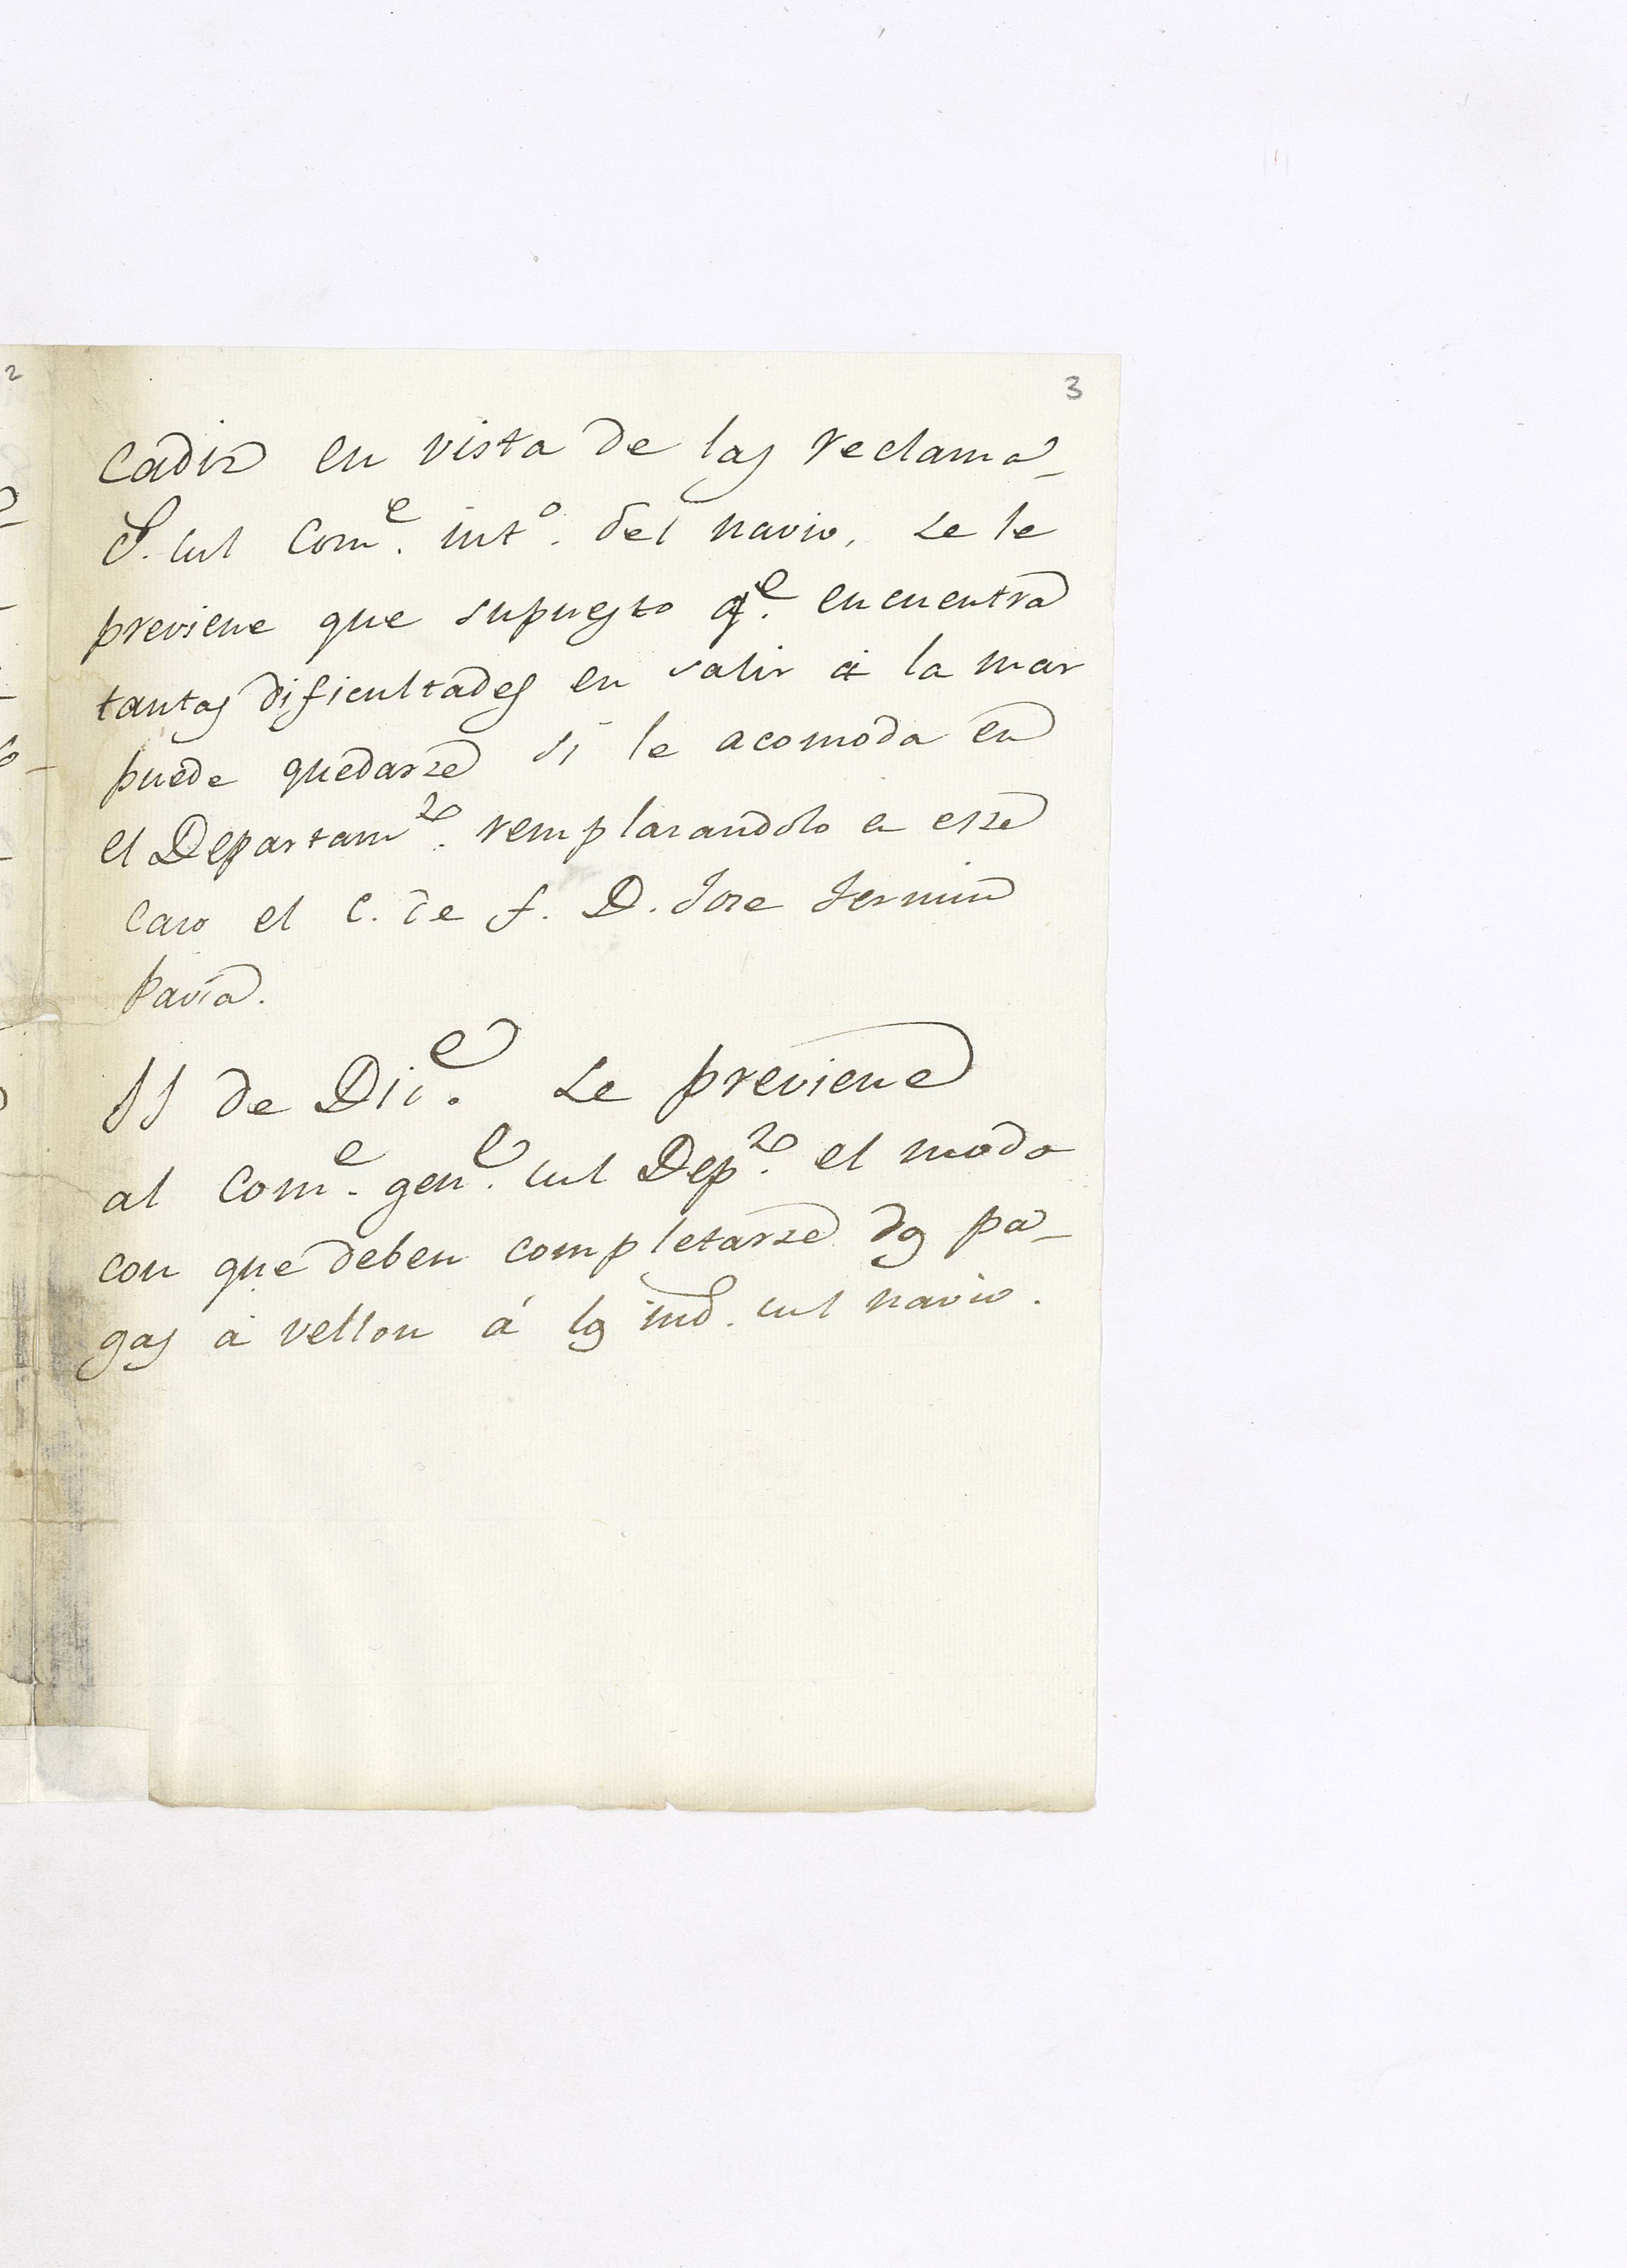 3
Cadiz en vista de las reclama-
c.s del Com.e int.o del navio, se le
previene que supuesto q.e encuentra
tantas dificultades en salir à la mar
puede quedarse si le acomoda en
el Departam.to remplazandolo en ese
caso el C. de f. D. Jose Fermin
Pavia.
11 de Dic.e Se previene
al Com.e gen.l del Dep.to el modo
con que deben completarse dos pa-
gas á vellon á los ind.s del navio.
2